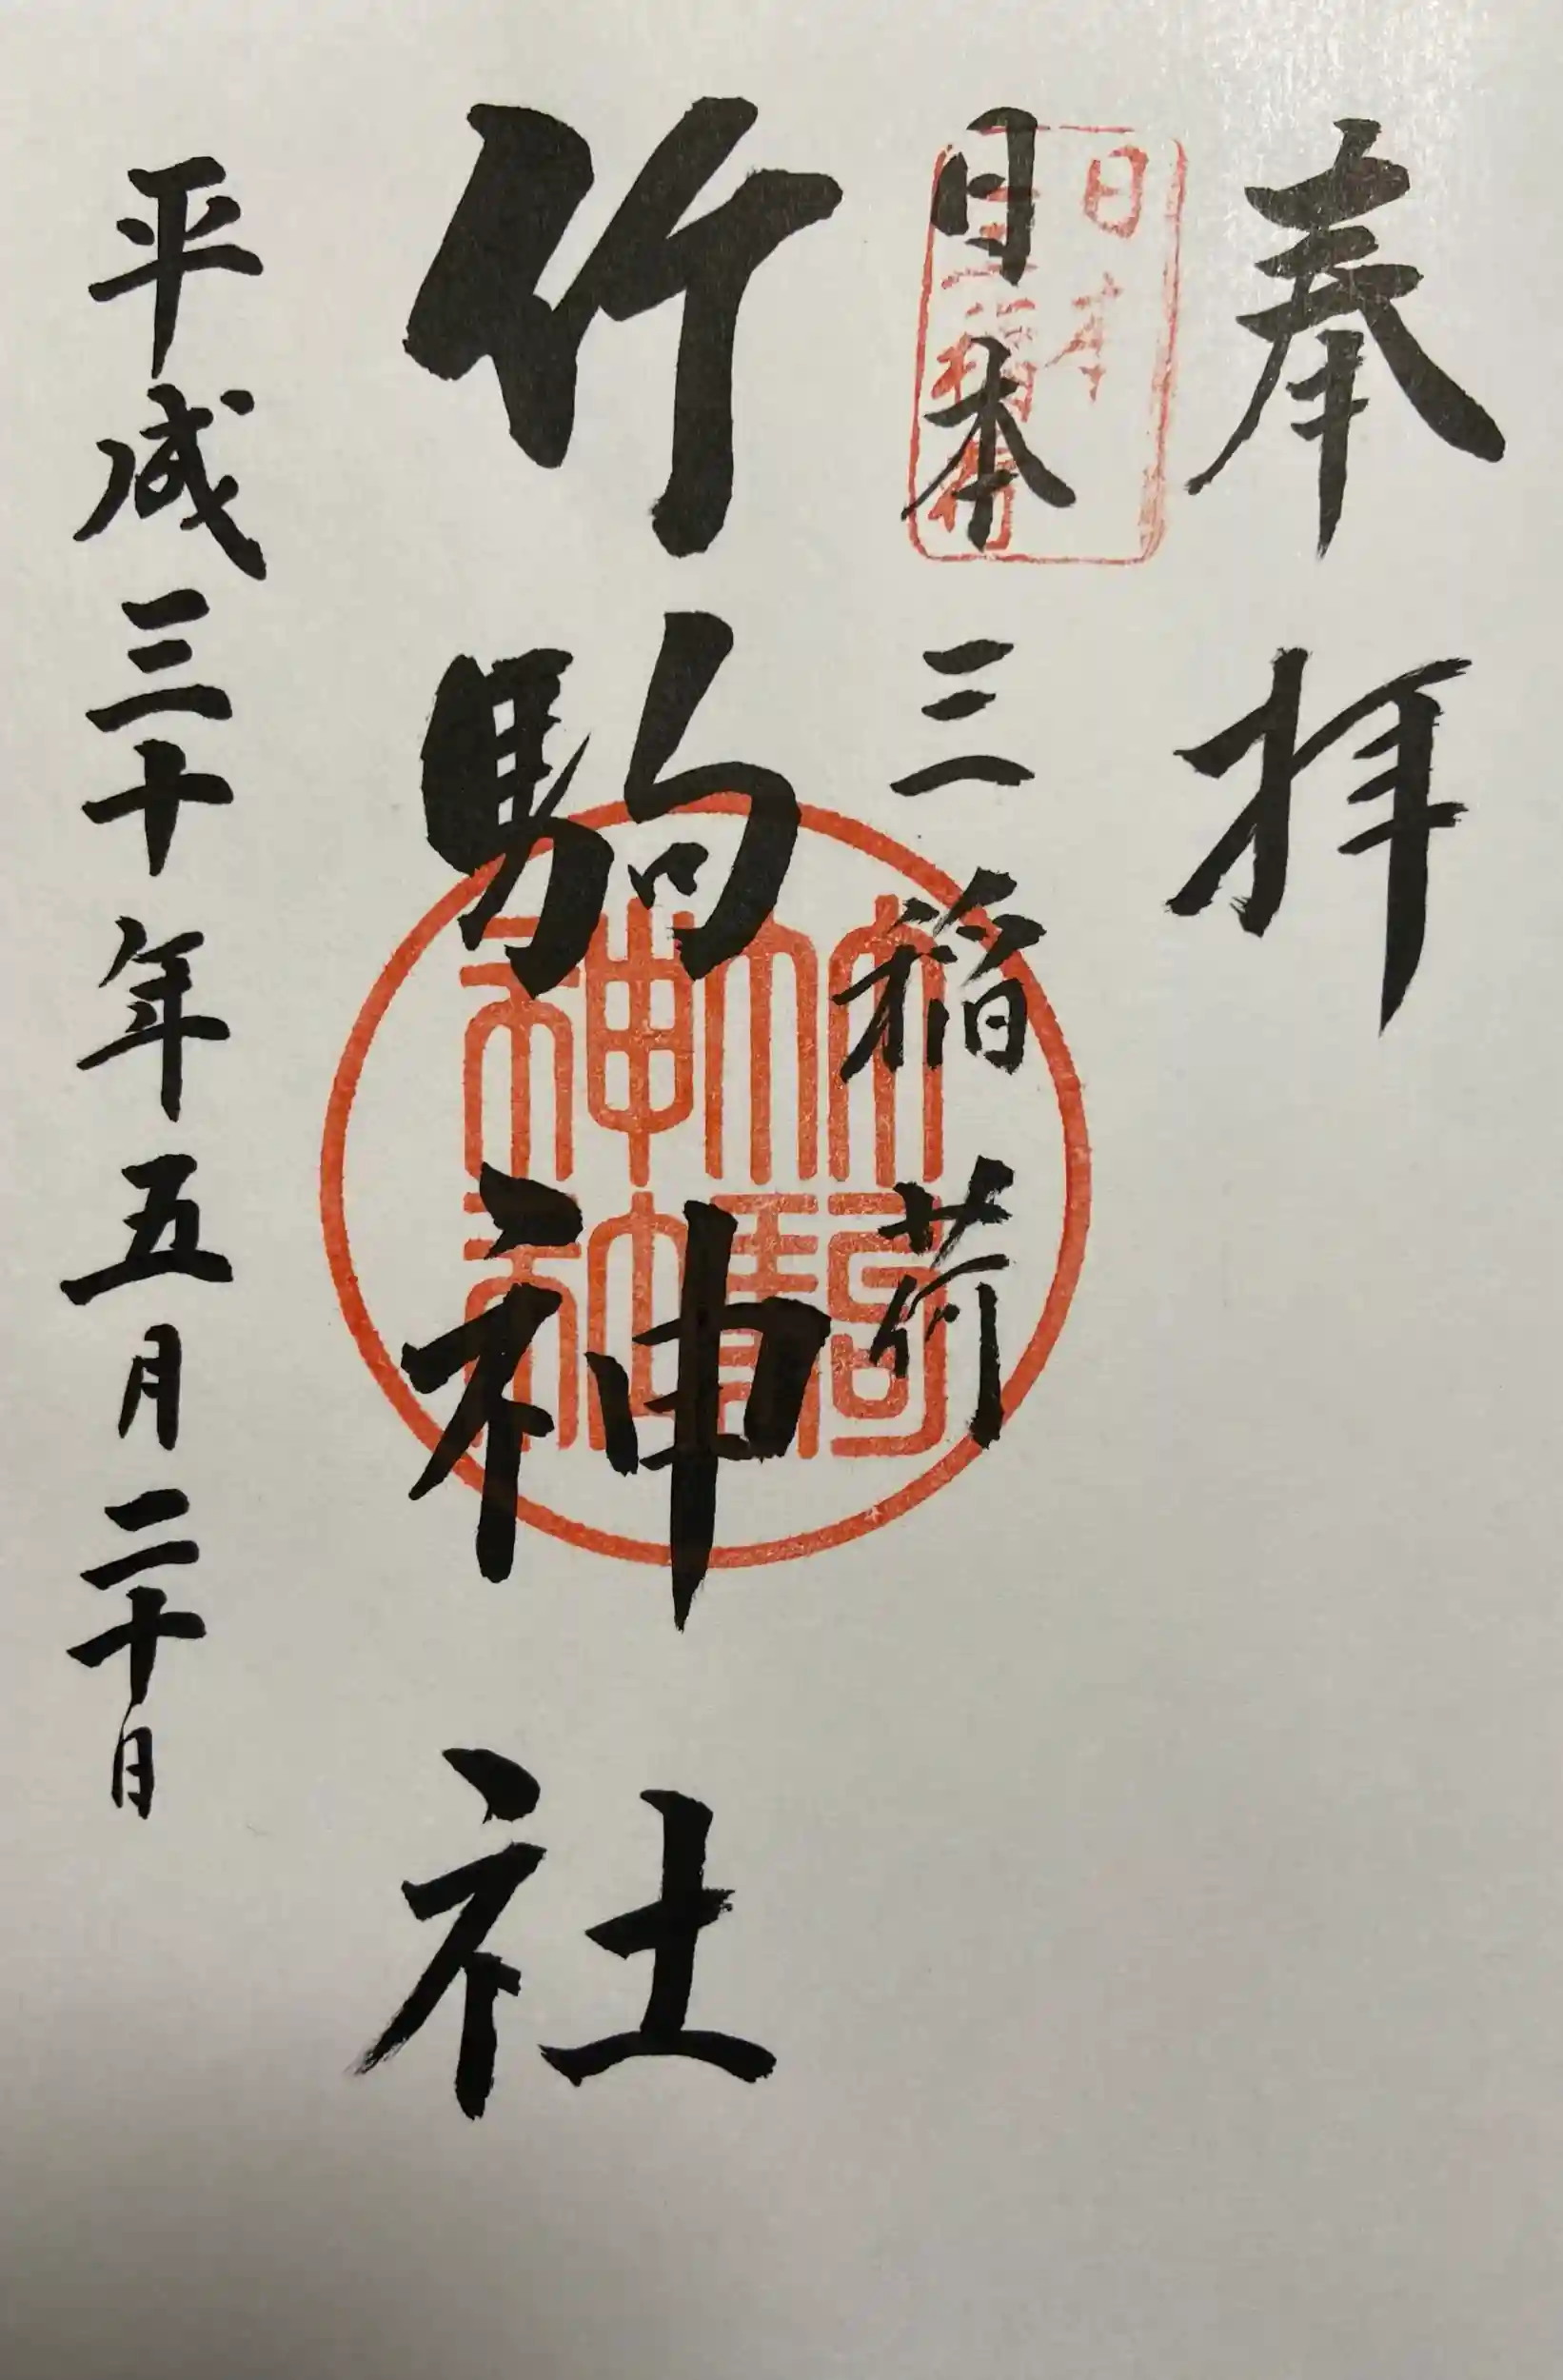 奉拝
日本三稲荷
日本
三稲荷
竹駒神社
竹駒神社
平成三十年五月二十日